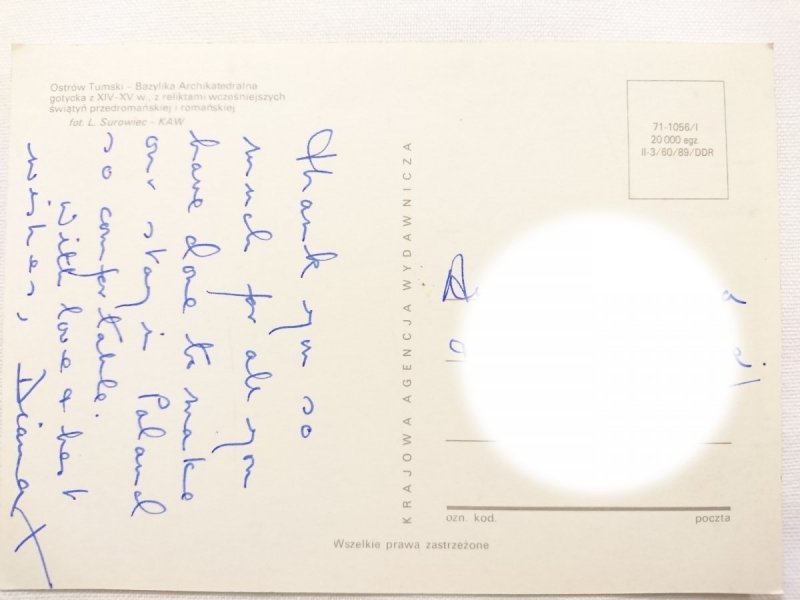 Ostrów Tumski – Bazylika Archikatedralna
gotycka z XIV-XV w., z reliktami wcześniejszych
świątyń przedromańskiej i romańskiej
fot. L. Surowiec - KAW
Thank you so
much for all you
have done to make
our stay in Poland
so comfortable.
With love & best
wishes, Diana X
KRAJOWA AGENCJA WYDAWNICZA
71-1056/I
20 000 egz
II-3/60/89/DDR
ozn. kod.
poczta
Wszelkie prawa zastrzeżone